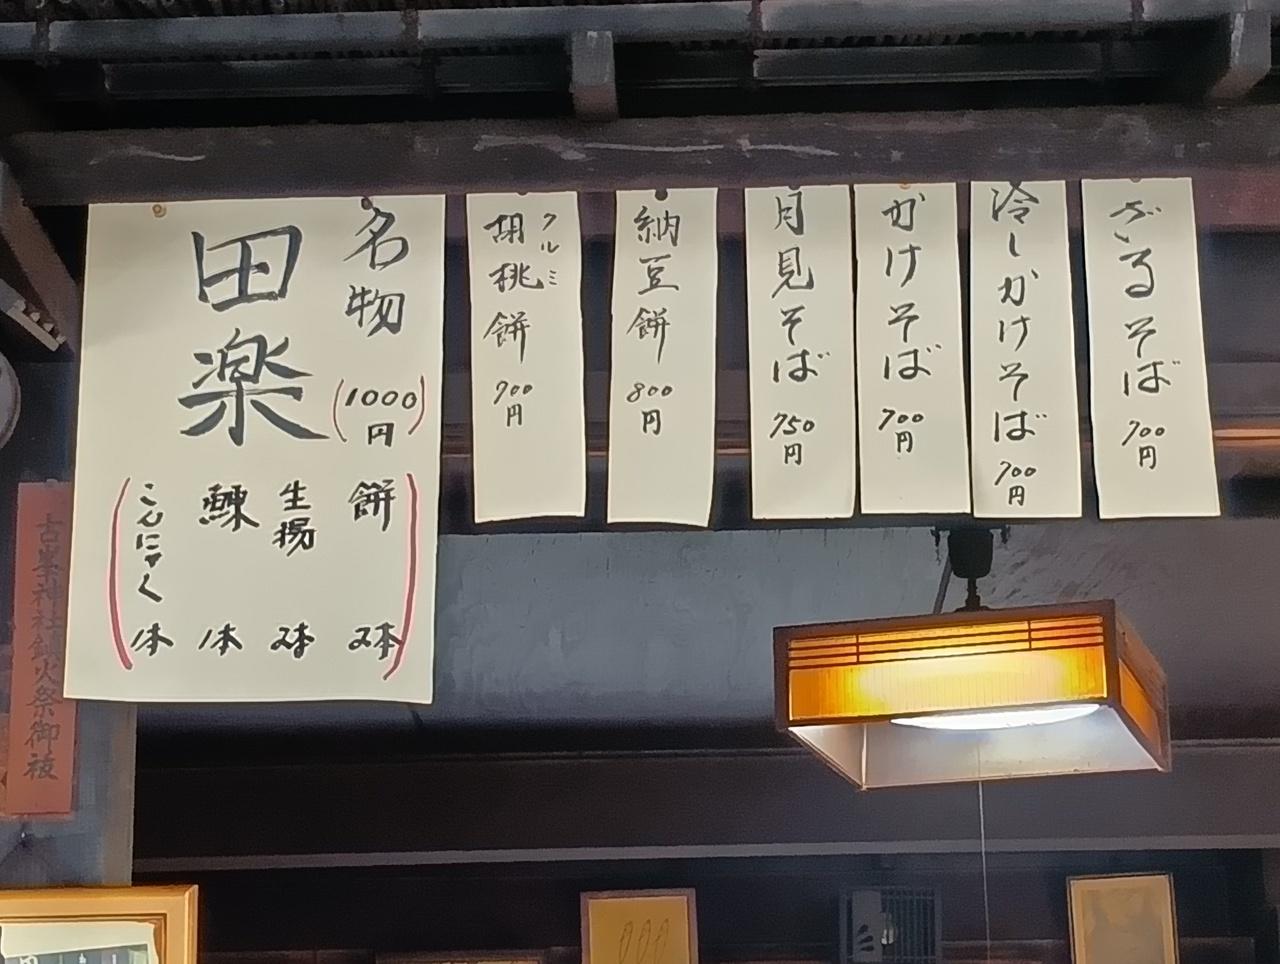 ざるそば
700円
冷しかけそば
700円
かけそば
700円
月見そば
750円
納豆餅
800円
クルミ
胡桃餅
900円
名物
(1000円)
田楽
(餅 2本
生揚 2本
鰊 1本
こんにゃく 1本)
古峯神社鎮火祭御祓